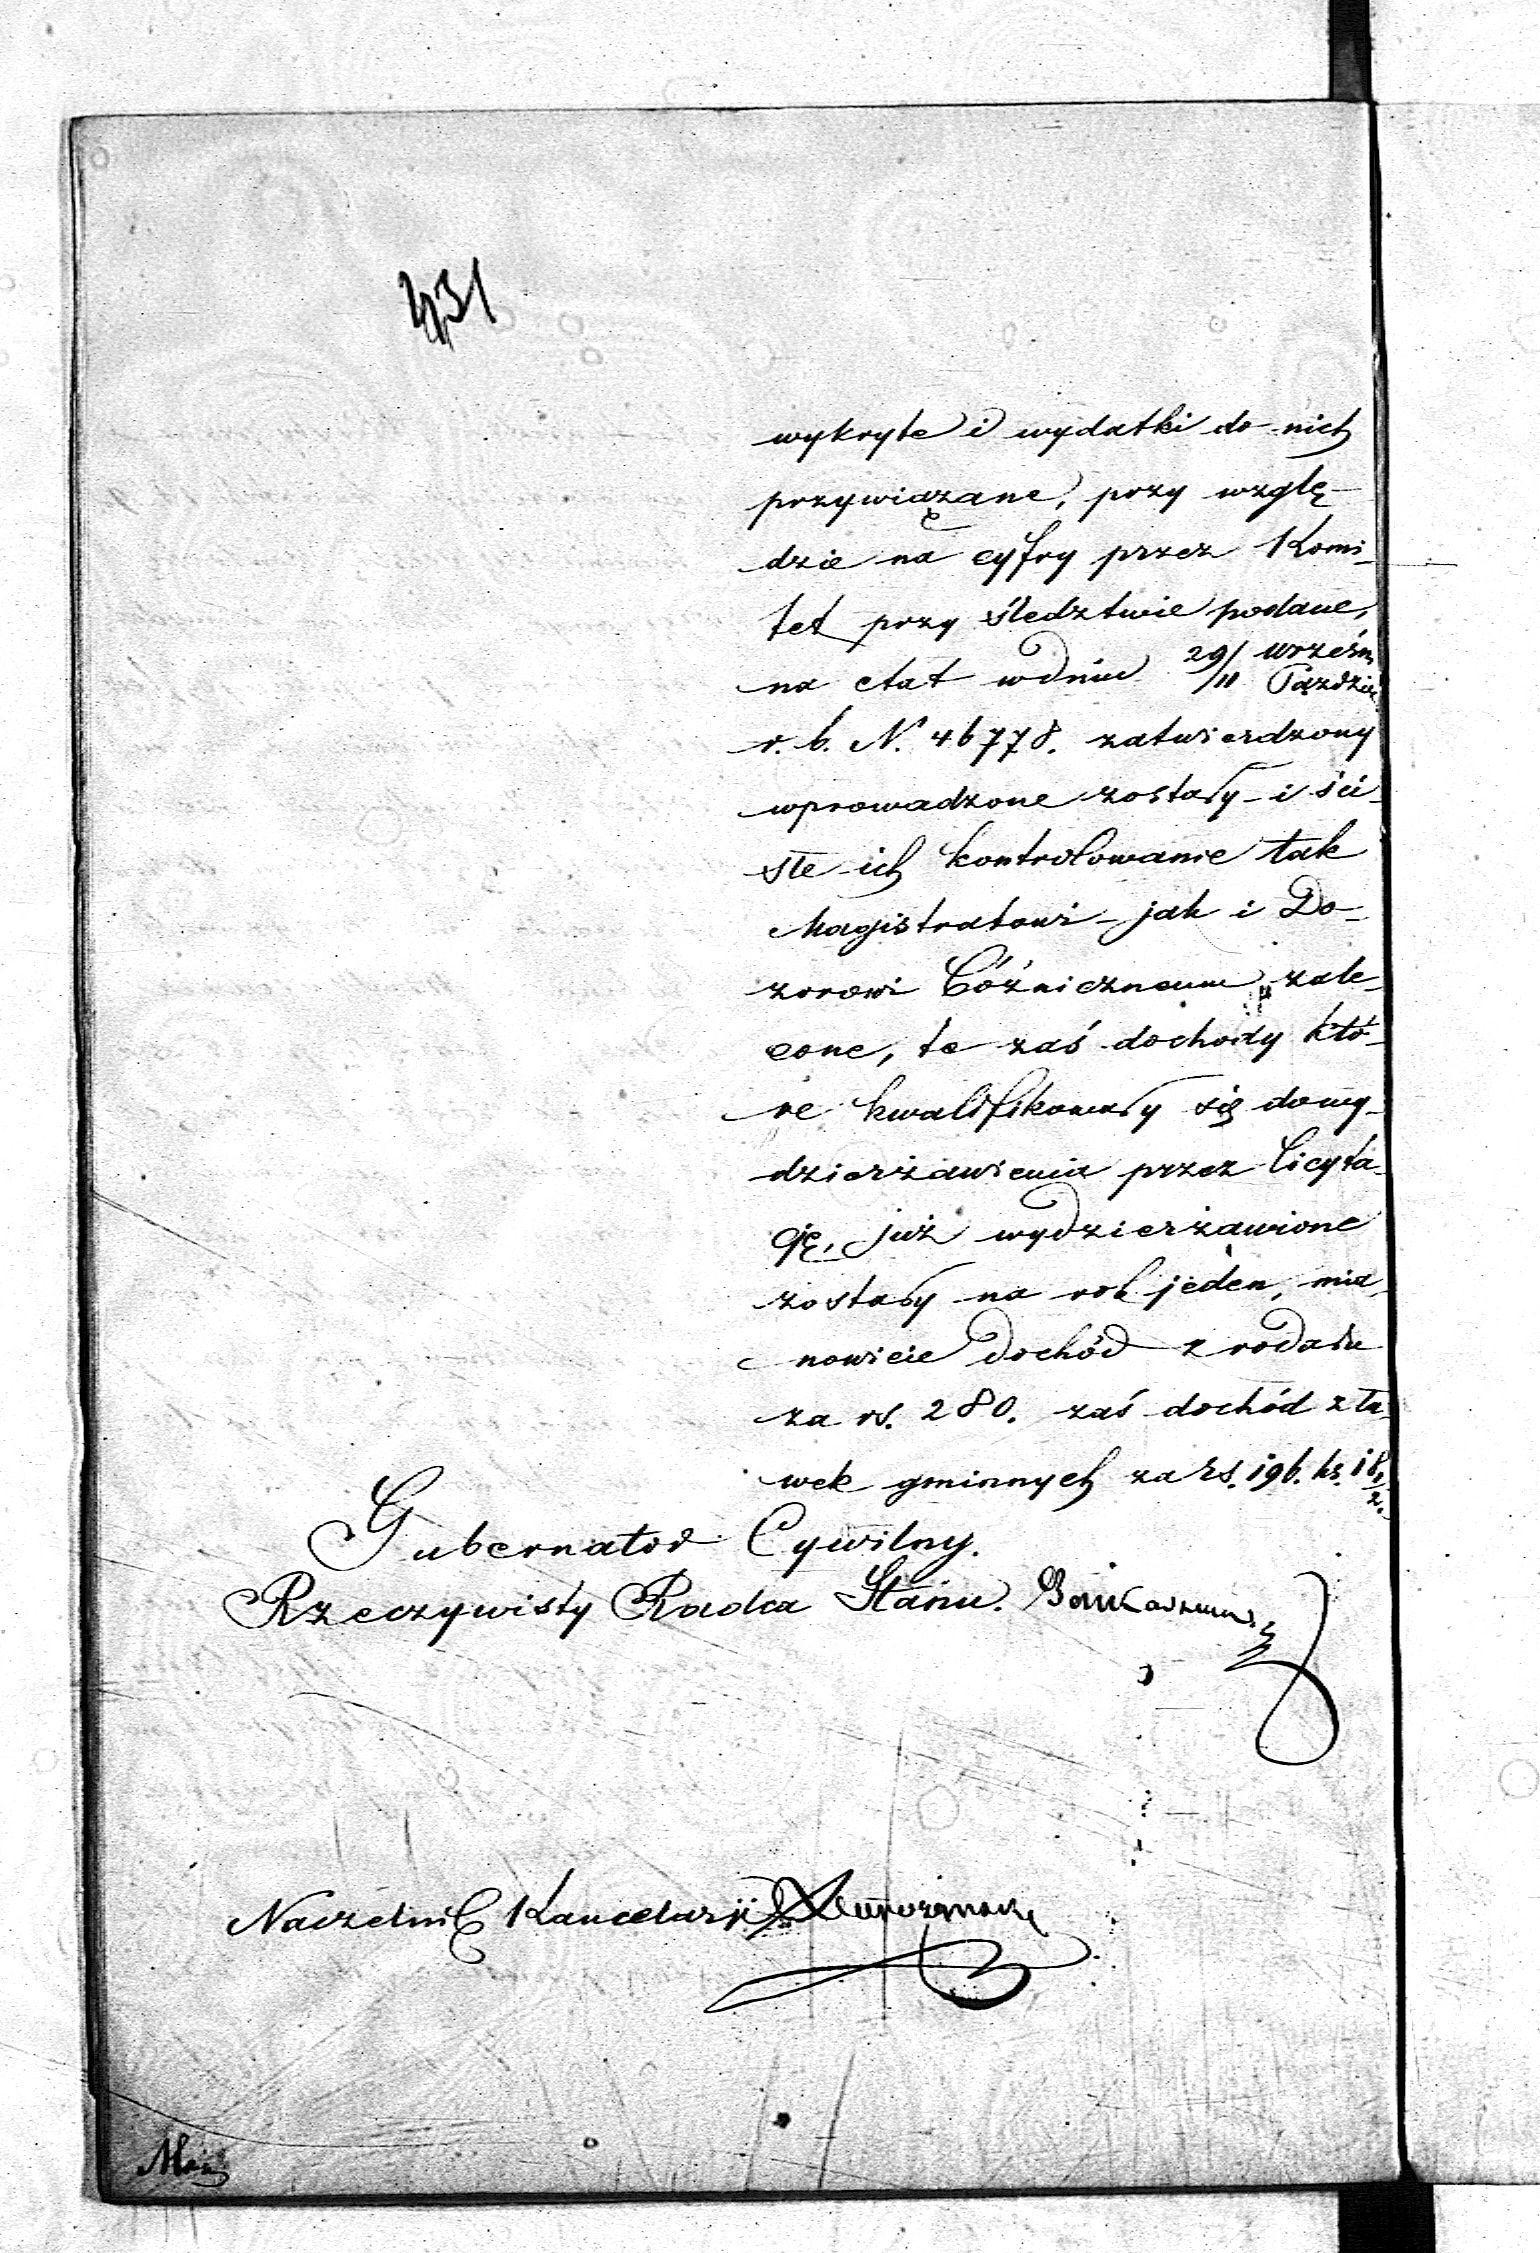 431
wykryte i wydatki do nich
przywiązane, przy wzglę-
dzie na cyfry przez Komi-
tet przy śledztwie podane,
na etat w dniu 29/11 Wrześn Paździe
r. b. N. 46778. zatwierdzony
wprowadzone zostały i ści-
słe ich kontrolowanie tak
Magistratowi jak i Do-
zorowi Bóżnicznemu zale-
cone, te zaś dochody któ-
re kwalifikowały się dowy-
dzierżawienia przez licyta-
cję, już wydzierżawione
zostały na rok jeden, mia-
nowicie dochód z rodału
za rs. 280. zaś dochód z ła-
wek gminnych za rs. 196. k. 18 1/2.
Gubernator Cywilny.
Rzeczywisty Radca Stanu.
Naczelnik Kancelarji